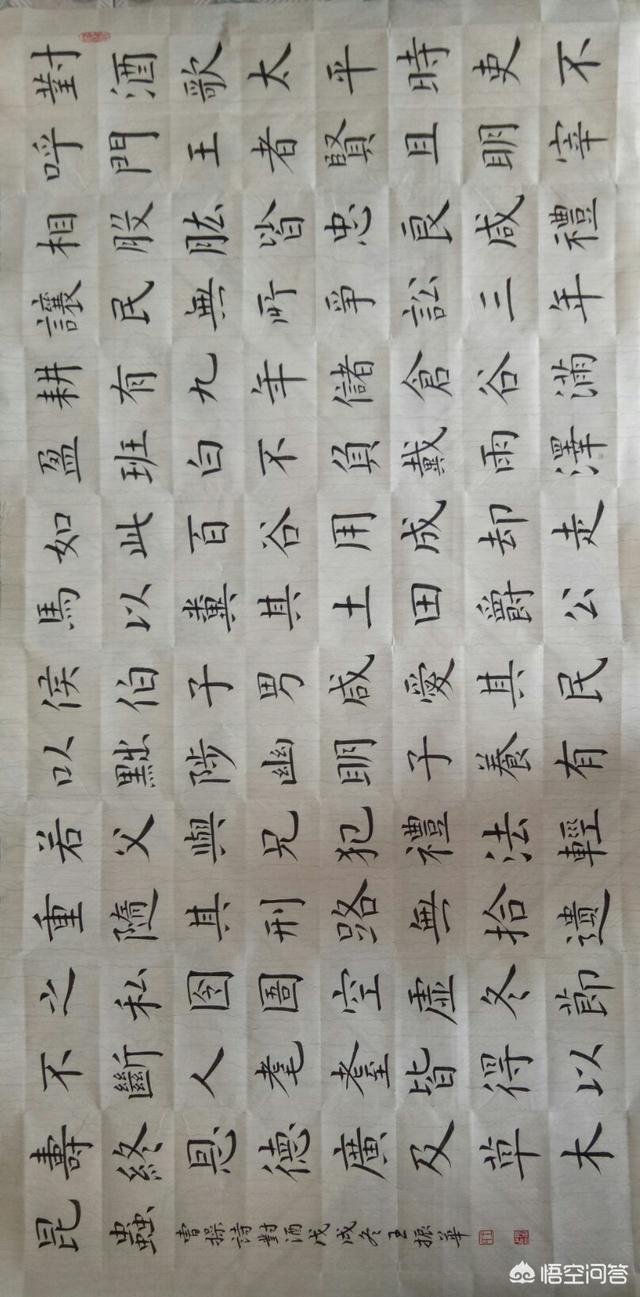 對酒歌太平時吏不
呼門王者賢且明宰
相股肱皆忠良咸禮
讓民無所爭訟三年
耕有九年儲倉谷滿
盈班白不負戴雨澤
如此百谷用成却走
馬以糞其土田爵公
侯伯子男咸愛其民
以黜陟幽明子養有
若父與兄犯禮法輕
重隨其刑路無拾遺
之私囹圄空虛冬節
不斷人耄耋皆得以
壽終恩德廣及草木
昆蟲
曹操詩對酒戊戌冬王振華
悟空问答